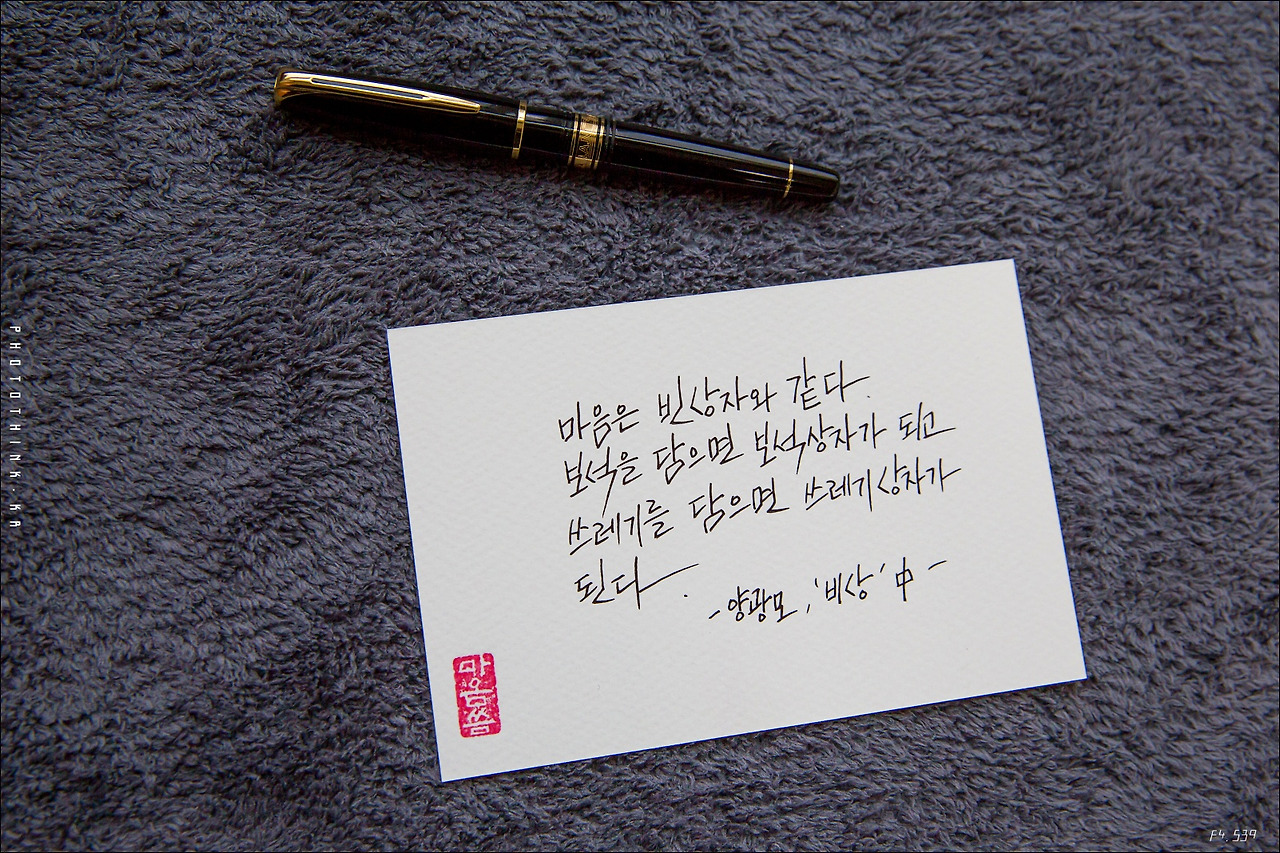 마음은 빈상자와 같다.
보석을 담으면 보석상자가 되고
쓰레기를 담으면 쓰레기상자가
된다.
- 양광모, '비상' 中 -
PHOTOTHINK.KA
F4.539